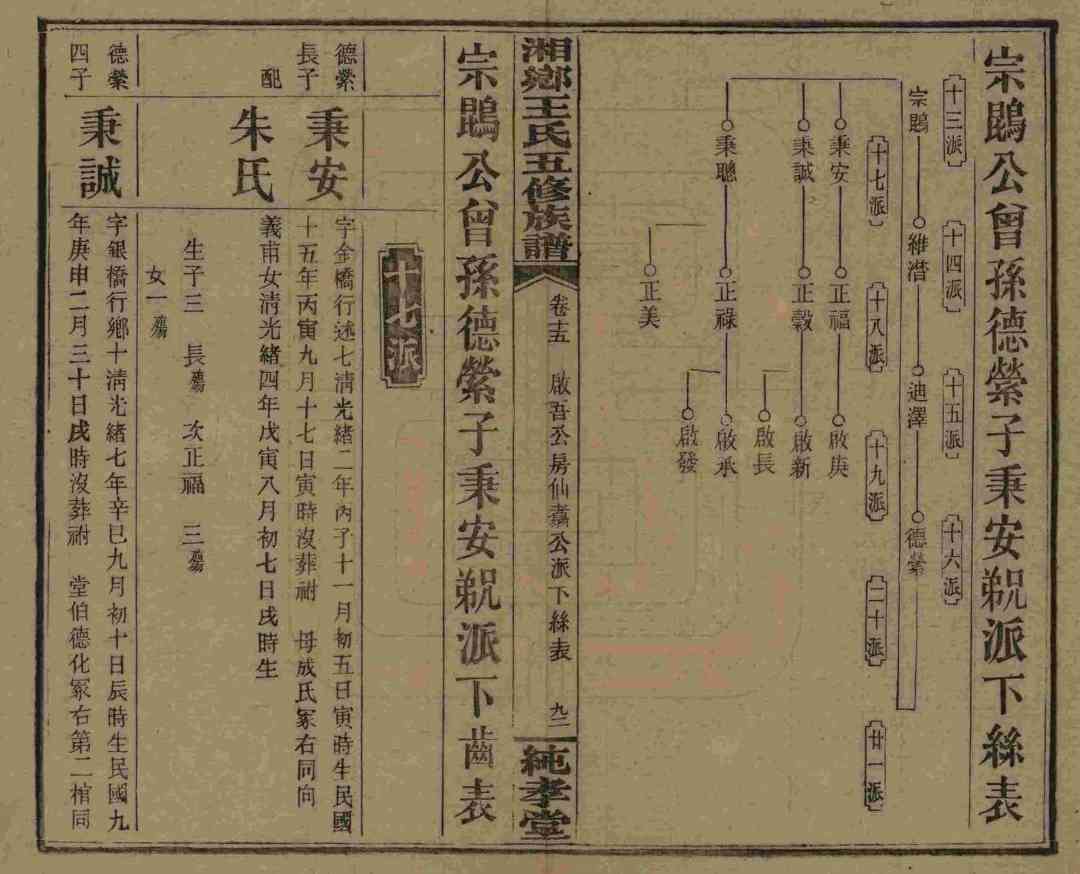 宗鵾公曾孫德縈子秉安㒭派下絲表
十三派
十四派
十五派
十六派
宗鵾
維濳
迪澤
德縈
十七派
十八派
十九派
二十派
廿一派
秉安
正福
啟庚
秉誠
正毅
啟新
啟長
秉聰
正祿
啟承
啟發
正美
湘鄉王氏五修族譜
卷十五
啟吾公房仙翥公派下絲表
九二
純孝堂
宗鵾公曾孫德縈子秉安派下齒表
十七派
德縈長子
秉安
字金橋行述七清光緒二年丙子十一月初五日寅時生民國
十五年丙寅九月十七日寅時沒葬祔 母成氏冢右同向
配
朱氏
義甫女清光緒四年戊寅八月初七日戌時生
生子三 長殤 次正福 三殤
女一殤
德縈四子
秉誠
字銀橋行鄉十清光緒七年辛巳九月初十日辰時生民國九
年庚申二月三十日戌時沒葬祔 堂伯德化冢右第二棺同